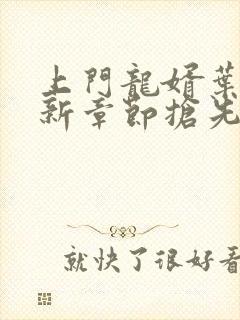 上門龍婿葉
新章節搶先
就快了很好看